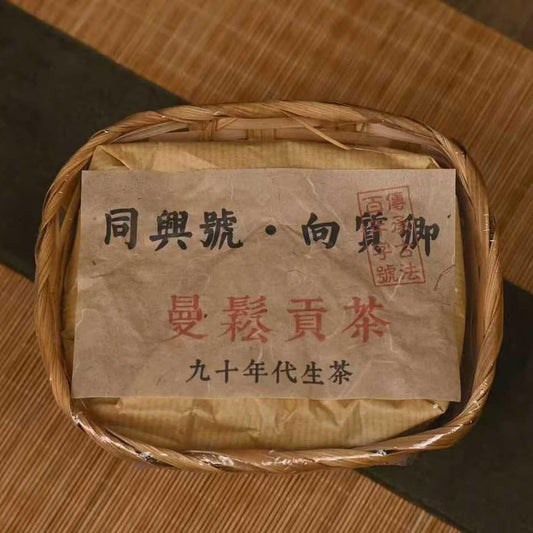 同興號·向質卿
傳承古法
百年字號
曼鬆貢茶
九十年代生茶